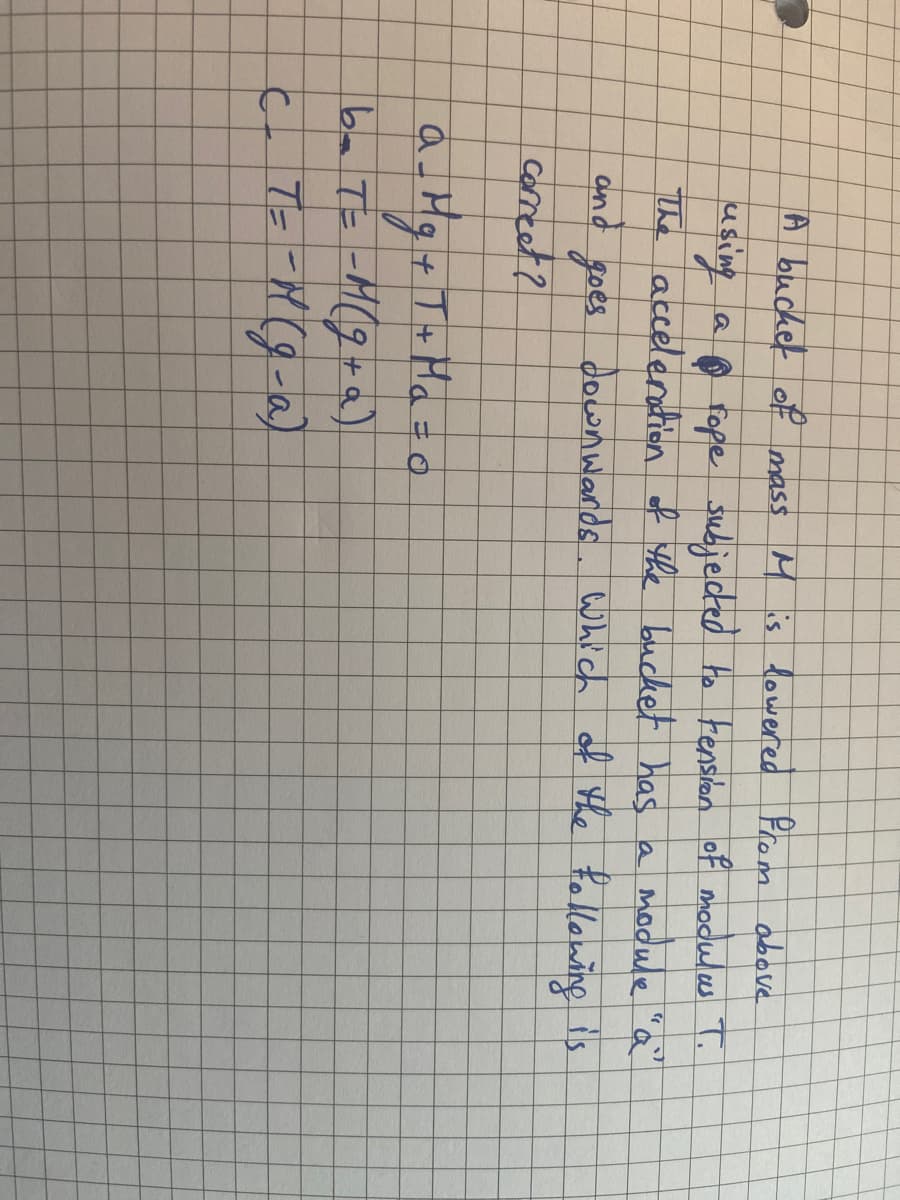 A bucket of mass M is lowered from above
using a rope subjected to tension of modulus T.
The acceleration of the bucket has a module "a"
and goes downwards. Which of the following is
correct?
a- Mg + T + Ma = 0
b- T = -M(g + a)
C- T = -M(g - a)